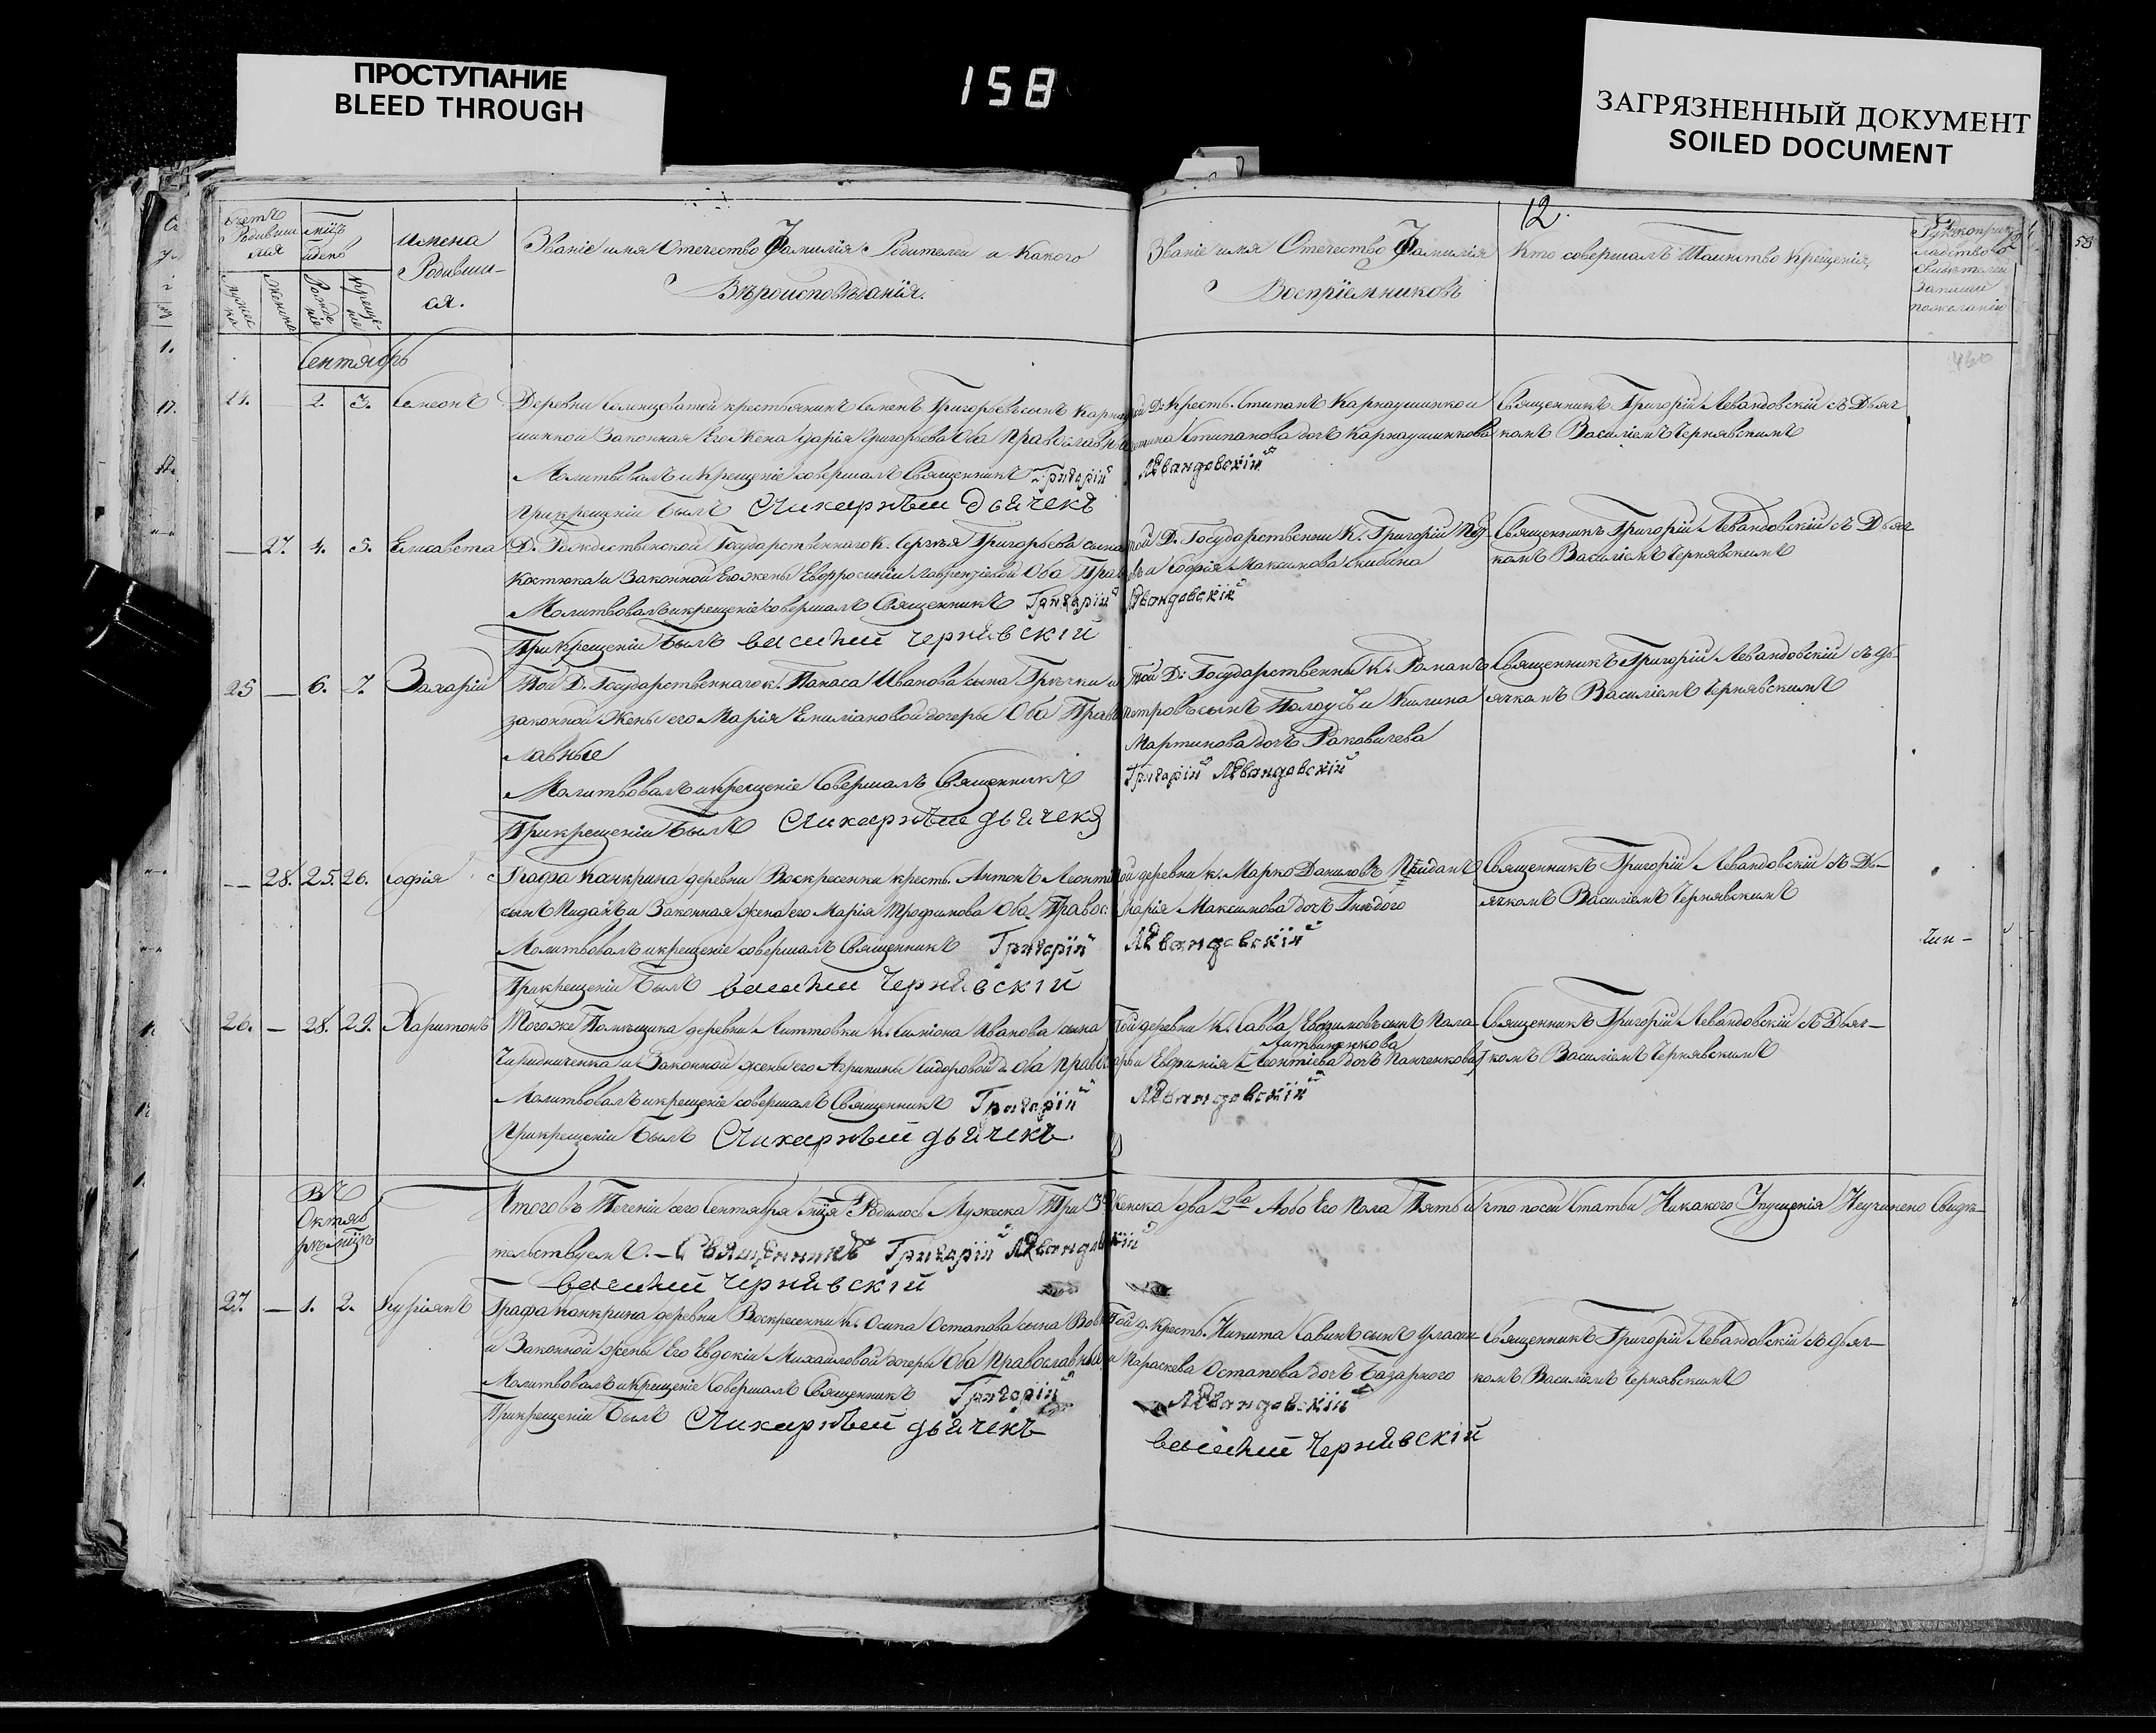 ПРОСТУПАНИЕ
BLEED THROUGH
158
ЗАГРЯЗНЕННЫЙ ДОКУМЕНТ
SOILED DOCUMENT
12.
460
Имена Родившися.
Званіе имя Отечество Фамилія Родителей и Какого
Вѣроисповѣданія.
Званіе имя Отечество Фамилія
Воспріемниковъ
Кто совершалъ Таинство Крещенія,
Сентябрь
24. 2. 3. Симеонъ
Деревни Солонцоватой крестьянинъ Семенъ Григорьевъ сынъ
Законная Его Жена Дарія Григорьева Оба Православны
Молитвовалъ и крещеніе совершалъ Священникъ Григорій
При крещеніи Былъ дьячекъ
Д. Кресть. Стипанъ Карнаушинко и
Стипанова дочь Карнаушинкова
Лѣвандовскій
Священникъ Григорій Левандовскій съ Дьяч
комъ Василіемъ Чернявскимъ
— 27. 4. 5. Елисавета
Д. Рождественской Государственнаго К. Сергѣя Григорьева сына
Костюка и Законной Его жены Евфросиніи Лаврентіевой Оба Прав
Молитвовалъ и крещеніе совершалъ Священникъ Григорій
При крещеніи Былъ василий чернявскій
той Д. Государственны К. Григорій
и Софія Максимова Скибина
Лѣвандовскій
Священникъ Григорій Левандовскій съ Дьяч
комъ Василіемъ Чернявскимъ
25 — 6. 7. Захарій
Той Д. Государственнаго к. Панаса Иванова сына Гречки и
законной Жены его Марія Емиліановой дочеры Оба Право
славные
Молитвовалъ и крещеніе Совершалъ Священникъ
При крещеніи Былъ дьячекъ
Той Д: Государственны К. Романъ
Петровъ сынъ Полоусъ и Килина
Мартинова дочь Раковичева
Григорій Лѣвандовскій
Священникъ Григорій Левандовскій съ дь-
ячкомъ Василіемъ Чернявскимъ
— 28. 25. 26. Софія
Графа Канкрина деревни Воскресенки кресть. Антонъ Леонті
сынъ Пиданъ и Законная жена его Марія Трофимова Оба Правос.
Молитвовалъ и крещеніе совершалъ Священникъ Григорій
При крещеніи Былъ василий Чернявскій
той деревни к. Марко Даниловъ
Марія Максимова дочь Гнѣдого
Лѣвандовскій
Священникъ Григорій Левандовскій съ Дь-
ячкомъ Василіемъ Чернявскимъ
26. — 28. 29. Харитонъ
Тогоже Помѣщика деревни Литтовки к. Симіона Иванова сына
Чиридниченка и Законной жены его Агрипины Сидоровой д. Оба Правос
Молитвовалъ и крещеніе совершалъ Священникъ Григорій
При крещеніи Былъ дьячекъ
Той деревни К. Савва Евфимовъ сынъ Пала-
Литвиненкова
и Евфимія Леонтіева дочь Панченкова
Лѣвандовскій
Священникъ Григорій Левандовскій съ Дьяч-
комъ Василіемъ Чернявскимъ
Въ Октябрѣ мцѣ
Итого въ Теченіи сего Сентября мця Родилось Мужеска Три 3 Женска два 2ва Обо Его Пола Пять и что посей Статьи Никакого Упущенія Неучинено Свидѣ-
тельствуемъ. — Священникъ Григорій Лѣвандовскій
василий чернявскій
27. — 1. 2. Купріянъ
Графа Канкрина деревни Воскресенки К. Осипа Остапова сына
и Законной жены Его Евдокіи Михайловой дочеры Оба Православные
Молитвовалъ и крещеніе Совершалъ Священникъ Григорій
При крещеніи Былъ дьячекъ
Той д. Кресть. Никита Савинъ сынъ
и Параскева Остапова дочь Базарного
Лѣвандовскій
василий Чернявскій
Священникъ Григорій Левандовскій съ Дьяч-
комъ Василіемъ Чернявскимъ